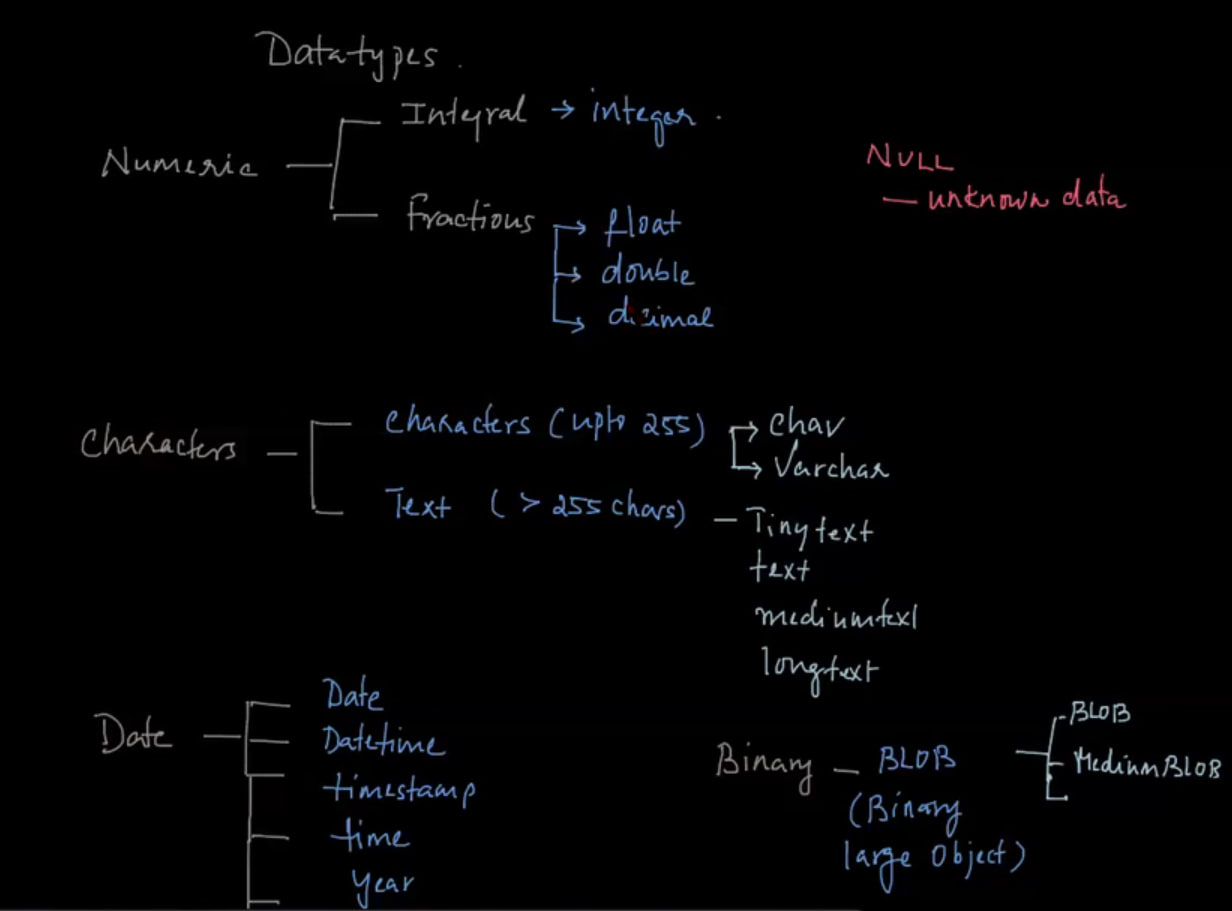 Datatypes.
Integral → integer.
Numeric
NULL
— unknown data
Fractions → float
→ double
→ decimal
Characters
Characters (upto 255) → Char
→ Varchar
Text (> 255 chars) — Tinytext
text
mediumtext
longtext
Date
Date
Datetime
timestamp
time
year
Binary — BLOB
(Binary
large Object)
BLOB
MediumBLOB